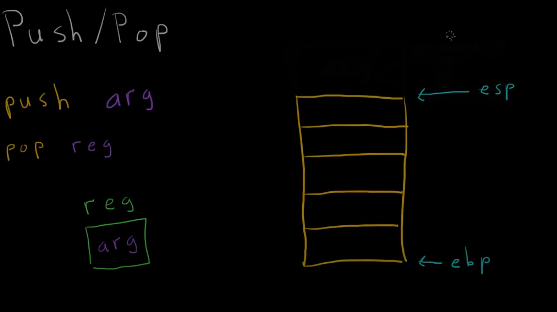 Push/Pop
push arg
pop reg
reg
arg
← esp
← ebp